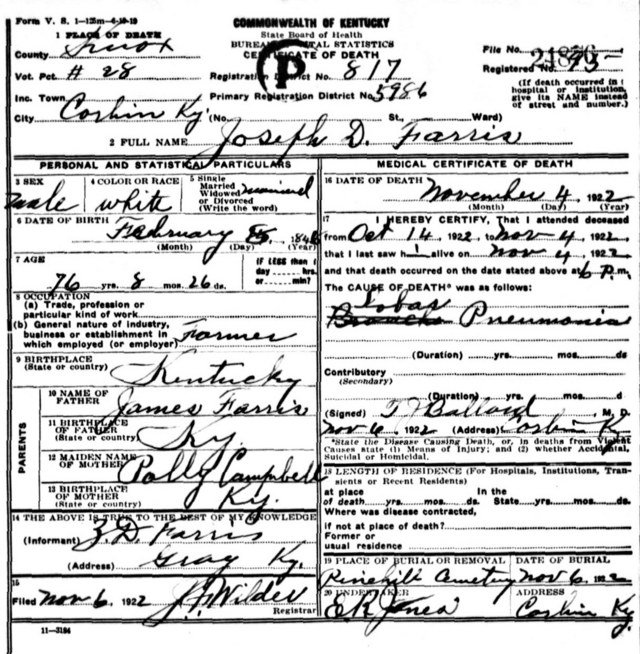 Form V. S. 1—125m—4-19-19
COMMONWEALTH OF KENTUCKY
State Board of Health
BUREAU OF VITAL STATISTICS
CERTIFICATE OF DEATH
1 PLACE OF DEATH
County Knox
Vot. Pct. # 28
Inc. Town
City Corbin Ky. (No. St., Ward)
P
Registration District No. 817
Primary Registration District No. 5986
File No. 21856
Registered No. 93
(If death occurred in a hospital or institution, give its NAME instead of street and number.)
2 FULL NAME Joseph D. Farris
PERSONAL AND STATISTICAL PARTICULARS
3 SEX male
4 COLOR OR RACE white
5 Single Married Widowed or Divorced (Write the word) married
6 DATE OF BIRTH February
(Month) (Day) (Year)
7 AGE
76 yrs. 8 mos. 26 ds.
IF LESS than 1 day hrs. or min?
8 OCCUPATION
(a) Trade, profession or particular kind of work
(b) General nature of industry, business or establishment in which employed (or employer) Farmer
9 BIRTHPLACE
(State or country) Kentucky
PARENTS
10 NAME OF FATHER James Farris
11 BIRTHPLACE OF FATHER
(State or country) Ky.
12 MAIDEN NAME OF MOTHER Polly Campbell
13 BIRTHPLACE OF MOTHER
(State or country) Ky.
14 THE ABOVE IS TRUE TO THE BEST OF MY KNOWLEDGE
(Informant) Z D Farris
(Address) Gray Ky.
15
Filed Nov 6, 1922 Wilder
Registrar
11—3184
MEDICAL CERTIFICATE OF DEATH
16 DATE OF DEATH
November 4, 1922
(Month) (Day) (Year)
17 I HEREBY CERTIFY, That I attended deceased
from Oct 14, 1922, to Nov 4, 1922
that I last saw h i alive on Nov 4, 1922
and that death occurred on the date stated above at 6 P.m.
The CAUSE OF DEATH* was as follows:
Lobar
Broncho Pneumonia
(Duration) yrs. mos. ds
Contributory
(Secondary)
(Duration) yrs. mos. ds
(Signed) Ballard, M. D.
Nov 6, 1922 (Address) Corbin Ky
*State the Disease Causing Death, or, in deaths from Violent
Causes state (1) Means of Injury; and (2) whether Accidental,
Suicidal or Homicidal.
18 LENGTH OF RESIDENCE (For Hospitals, Institutions, Transients or Recent Residents)
at place of death yrs. mos. ds. In the State yrs. mos. ds
Where was disease contracted,
if not at place of death?
Former or usual residence
19 PLACE OF BURIAL OR REMOVAL
Pinehill Cemetery
DATE OF BURIAL
Nov 6, 1922
20 UNDERTAKER
E K Jones
ADDRESS
Corbin Ky.